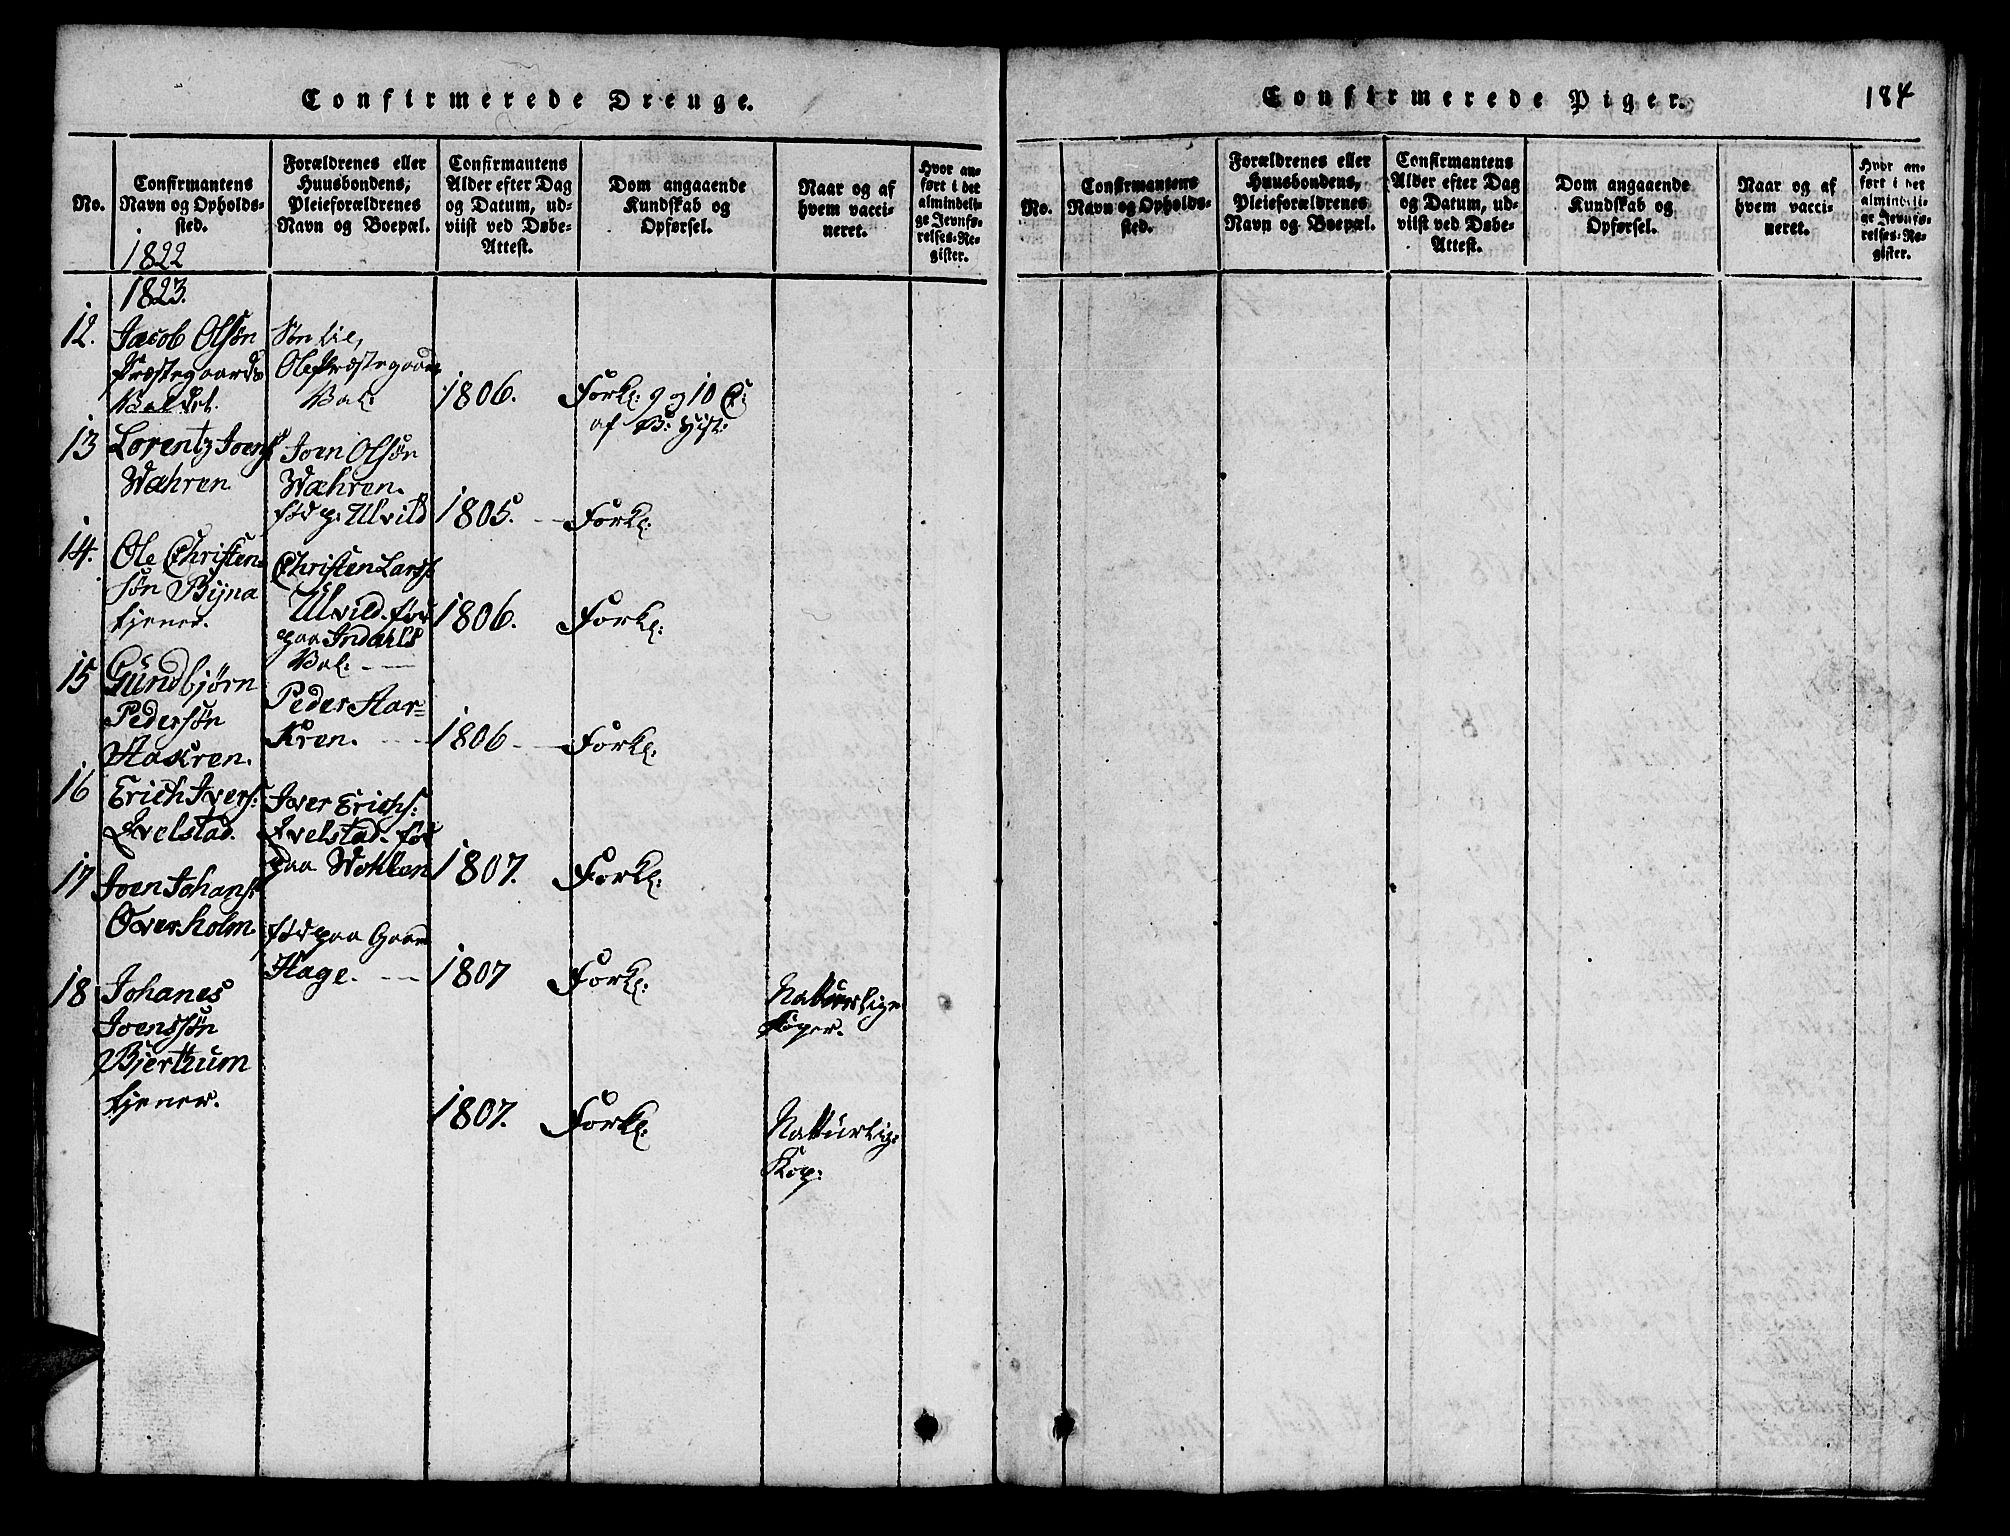 Confirmerede Drenge.
No.
Confirmantens
Navn og Opholds-
sted.
1822
Forældrenes eller
Huusbondens,
Pleieforældrenes
Navn og Boepæl.
Confirmantens
Alder efter Dag
og Datum, ud-
viist ved Døbe-
Attest.
Dom angaaende
Kundskab og
Opførsel.
Naar og af
hvem vacci-
neret.
Hvor an-
ført i det
almindeli-
ge Jevnfø-
relses-Re-
gister.
1823.
12.
Jacob Olsøn
Præstegaards
Valdet.
Søn til,
Ole Præstegaards
Val:
1806.
Forkl: 9 og 10 C:
af B: Hist:
13
Lorentz Joens:
Wæhren
Joen Olsøn
Wæhren.
fød p: Ulvild
1805. —
Forkl:
14.
Ole Christen-
søn Byna
tjener.
Christen Lars:
Ulvild. fød
paa Indahls
Val: —
1806.
Forkl:
15
Gundbjørn
Pedersøn
Haakren.
Peder Haa-
kren. —
1806 —
Forkl:
16
Erich Ivers:
Avelstad.
Iver Erichs:
Avelstad. fød
paa Wohlen
1807.
Forkl:
17
Joen Johans:
Overholm
fød paa
Hage. —
1807
Forkl:
Natturlige
Koper.
18
Johanes
Joenssøn
Bjertnum
tjener.
1807.
Forkl:
Natturlig:
Kop:
Confirmerede Piger.
184
No.
Confirmantens
Navn og Opholds-
sted.
Forældrenes eller
Huusbondens,
Pleieforældrenes
Navn og Boepæl.
Confirmantens
Alder efter Dag
og Datum, ud-
viist ved Døbe-
Attest.
Dom angaaende
Kundskab og
Opførsel.
Naar og af
hvem vacci-
neret.
Hvor an-
ført i det
almindeli-
ge Jevnfø-
relses-Re-
gister.